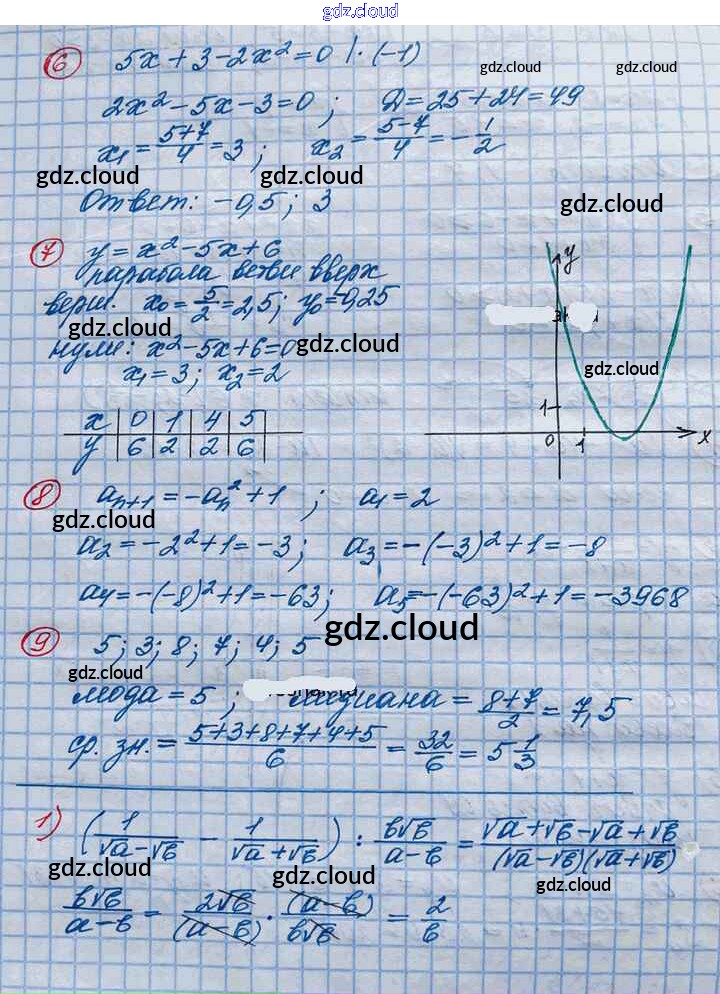 gdz.cloud
6 5x + 3 - 2x² = 0 | · (-1)
gdz.cloud gdz.cloud
2x² - 5x - 3 = 0 ; Д = 25 + 24 = 49
x₁ = (5+7)/4 = 3 ; x₂ = (5-7)/4 = -1/2
gdz.cloud gdz.cloud
Ответ: -0,5 ; 3
gdz.cloud
7 y = x² - 5x + 6
парабола ветви вверх
верш. x₀ = 5/2 = 2,5 ; y₀ = -0,25
gdz.cloud
нули: x² - 5x + 6 = 0
gdz.cloud
x₁ = 3 ; x₂ = 2
x | 0 | 1 | 4 | 5
y | 6 | 2 | 2 | 6
y
gdz.cloud
1
0 1 x
8 aₙ₊₁ = -aₙ² + 1 ; a₁ = 2
gdz.cloud
a₂ = -2² + 1 = -3 ; a₃ = -(-3)² + 1 = -8
a₄ = -(-8)² + 1 = -63 ; a₅ = -(-63)² + 1 = -3968
gdz.cloud
9 5 ; 3 ; 8 ; 7 ; 4 ; 5
gdz.cloud
мода = 5 ; медиана = (8+7)/2 = 7,5
ср. зн. = (5+3+8+7+4+5)/6 = 32/6 = 5 1/3
1) (1/(√a-√в) - 1/(√a+√в)) : в√в/(a-в) = (√a+√в-√a+√в)/((√a-√в)(√a+√в))
gdz.cloud gdz.cloud gdz.cloud
в√в/(a-в) = 2√в/(a-в) · (a-в)/в√в = 2/в
gdz.cloud gdz.cloud